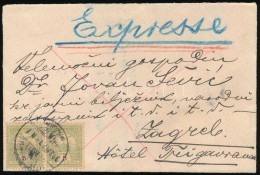 Expresse
Velemožni gospodin
Dr Jovan
kr. javni bilježnik, narodni
zastupnik i. t. d. i. t. d.
Zagreb
Hôtel Trigavrana